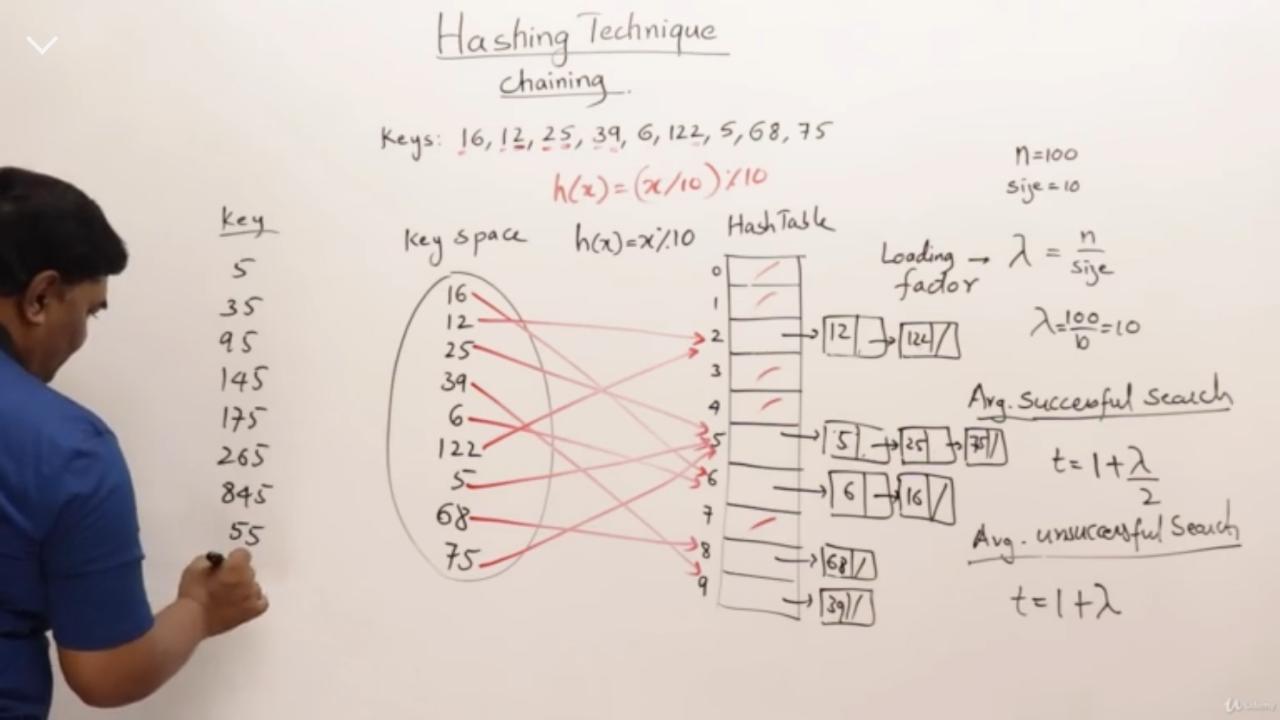 Hashing Technique
Chaining.
Keys: 16, 12, 25, 39, 6, 122, 5, 68, 75
h(x)=(x/10)%10
n=100
size=10
Key
5
35
95
145
175
265
845
55
Key space
16
12
25
39
6
122
5
68
75
h(x)=x%10
HashTable
0 /
1 /
2 → 12 → 122 /
3 /
4 /
5 → 5 → 25 → 75 /
6 → 6 → 16 /
7 /
8 → 68 /
9 → 39 /
Loading factor → λ = n/size
λ=100/10=10
Avg. Successful Search
t=1+λ/2
Avg. unsuccessful Search
t=1+λ
Udemy